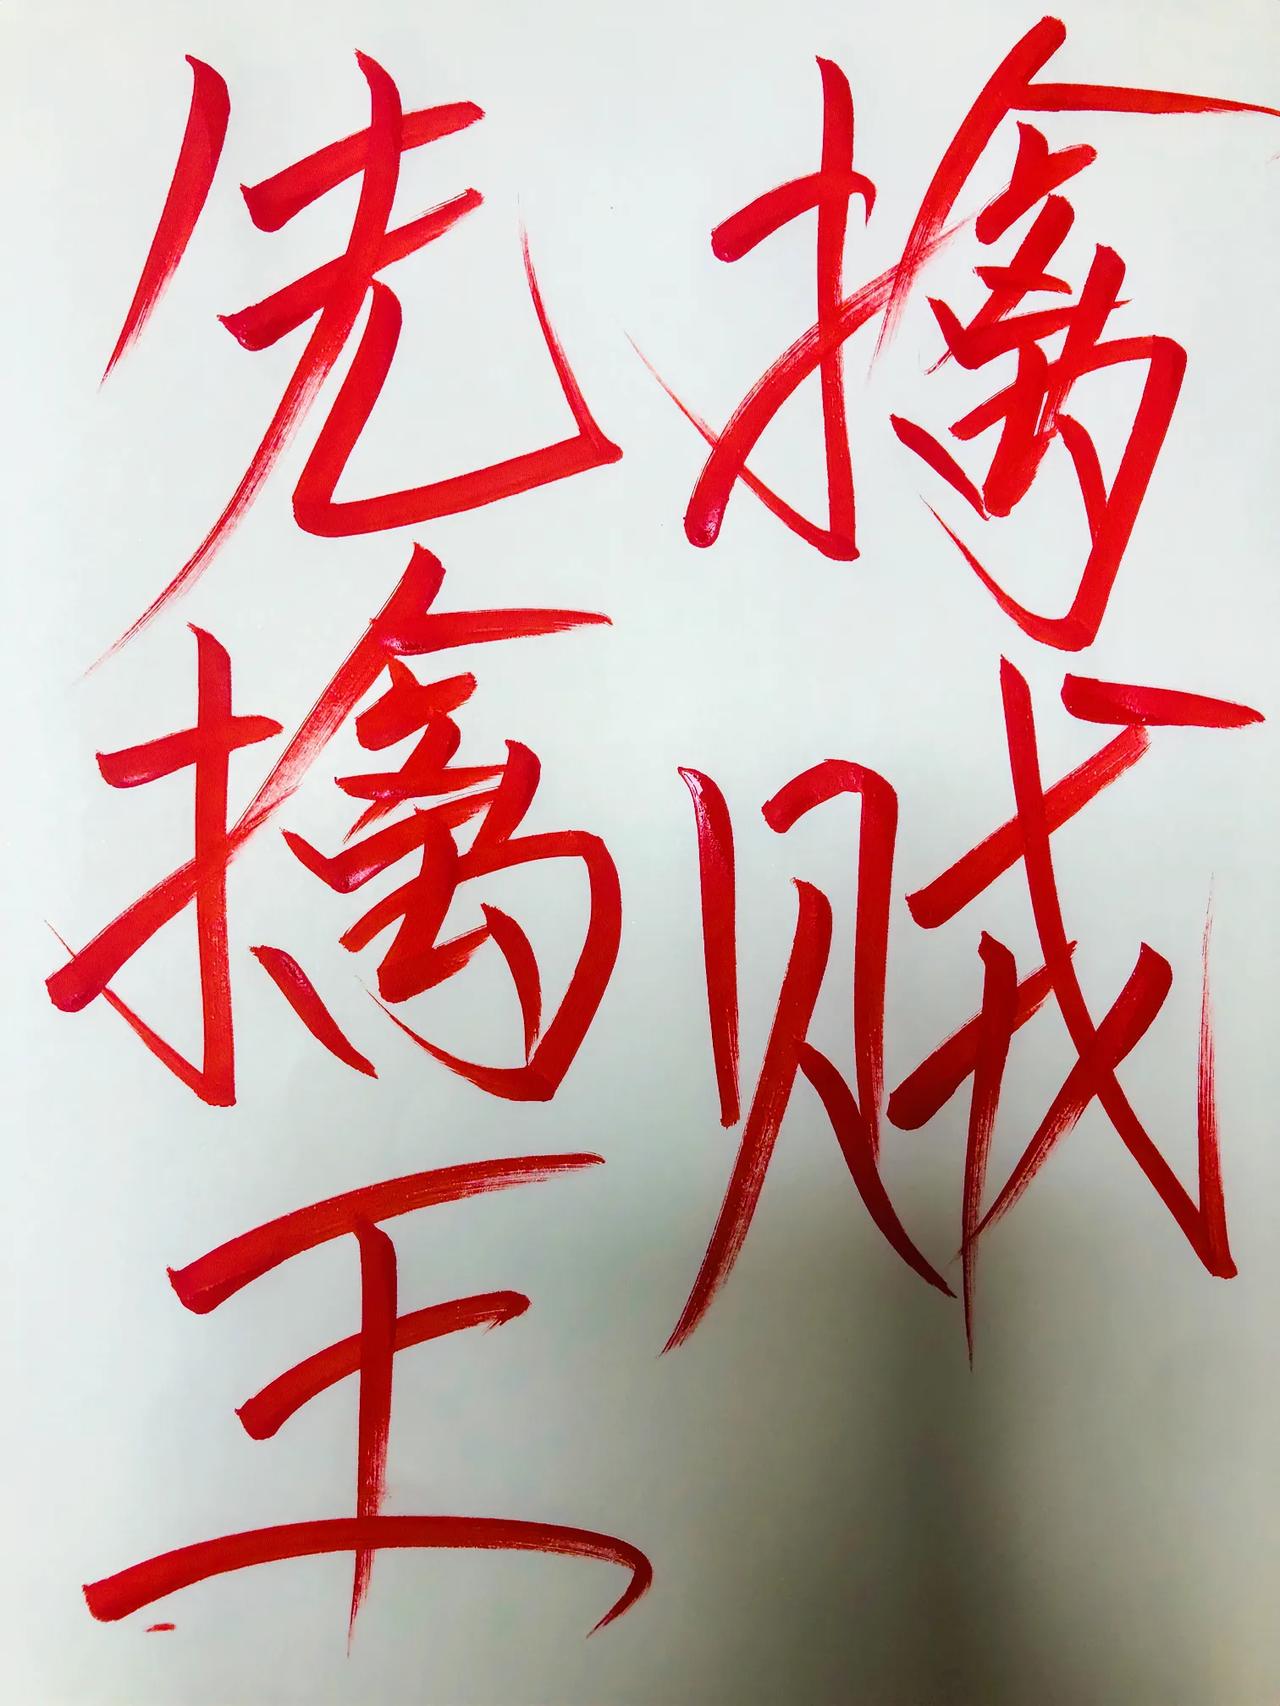 擒贼
先擒王